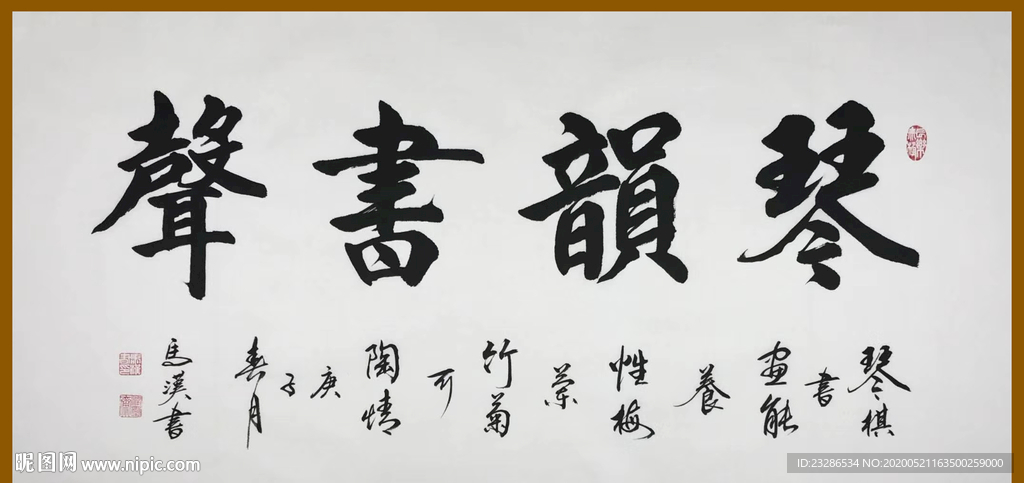 琴韻書聲
琴棋
書
畫能
養
性梅
蘭
竹菊
可
陶情
庚
子
春月
馬漢書
昵图网 www.nipic.com
ID:23286534 NO:20200521163500259000